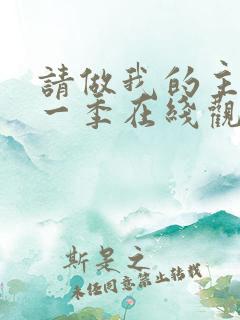 請做我的主
一季在綫觀
斯是之
未任同意禁止转载